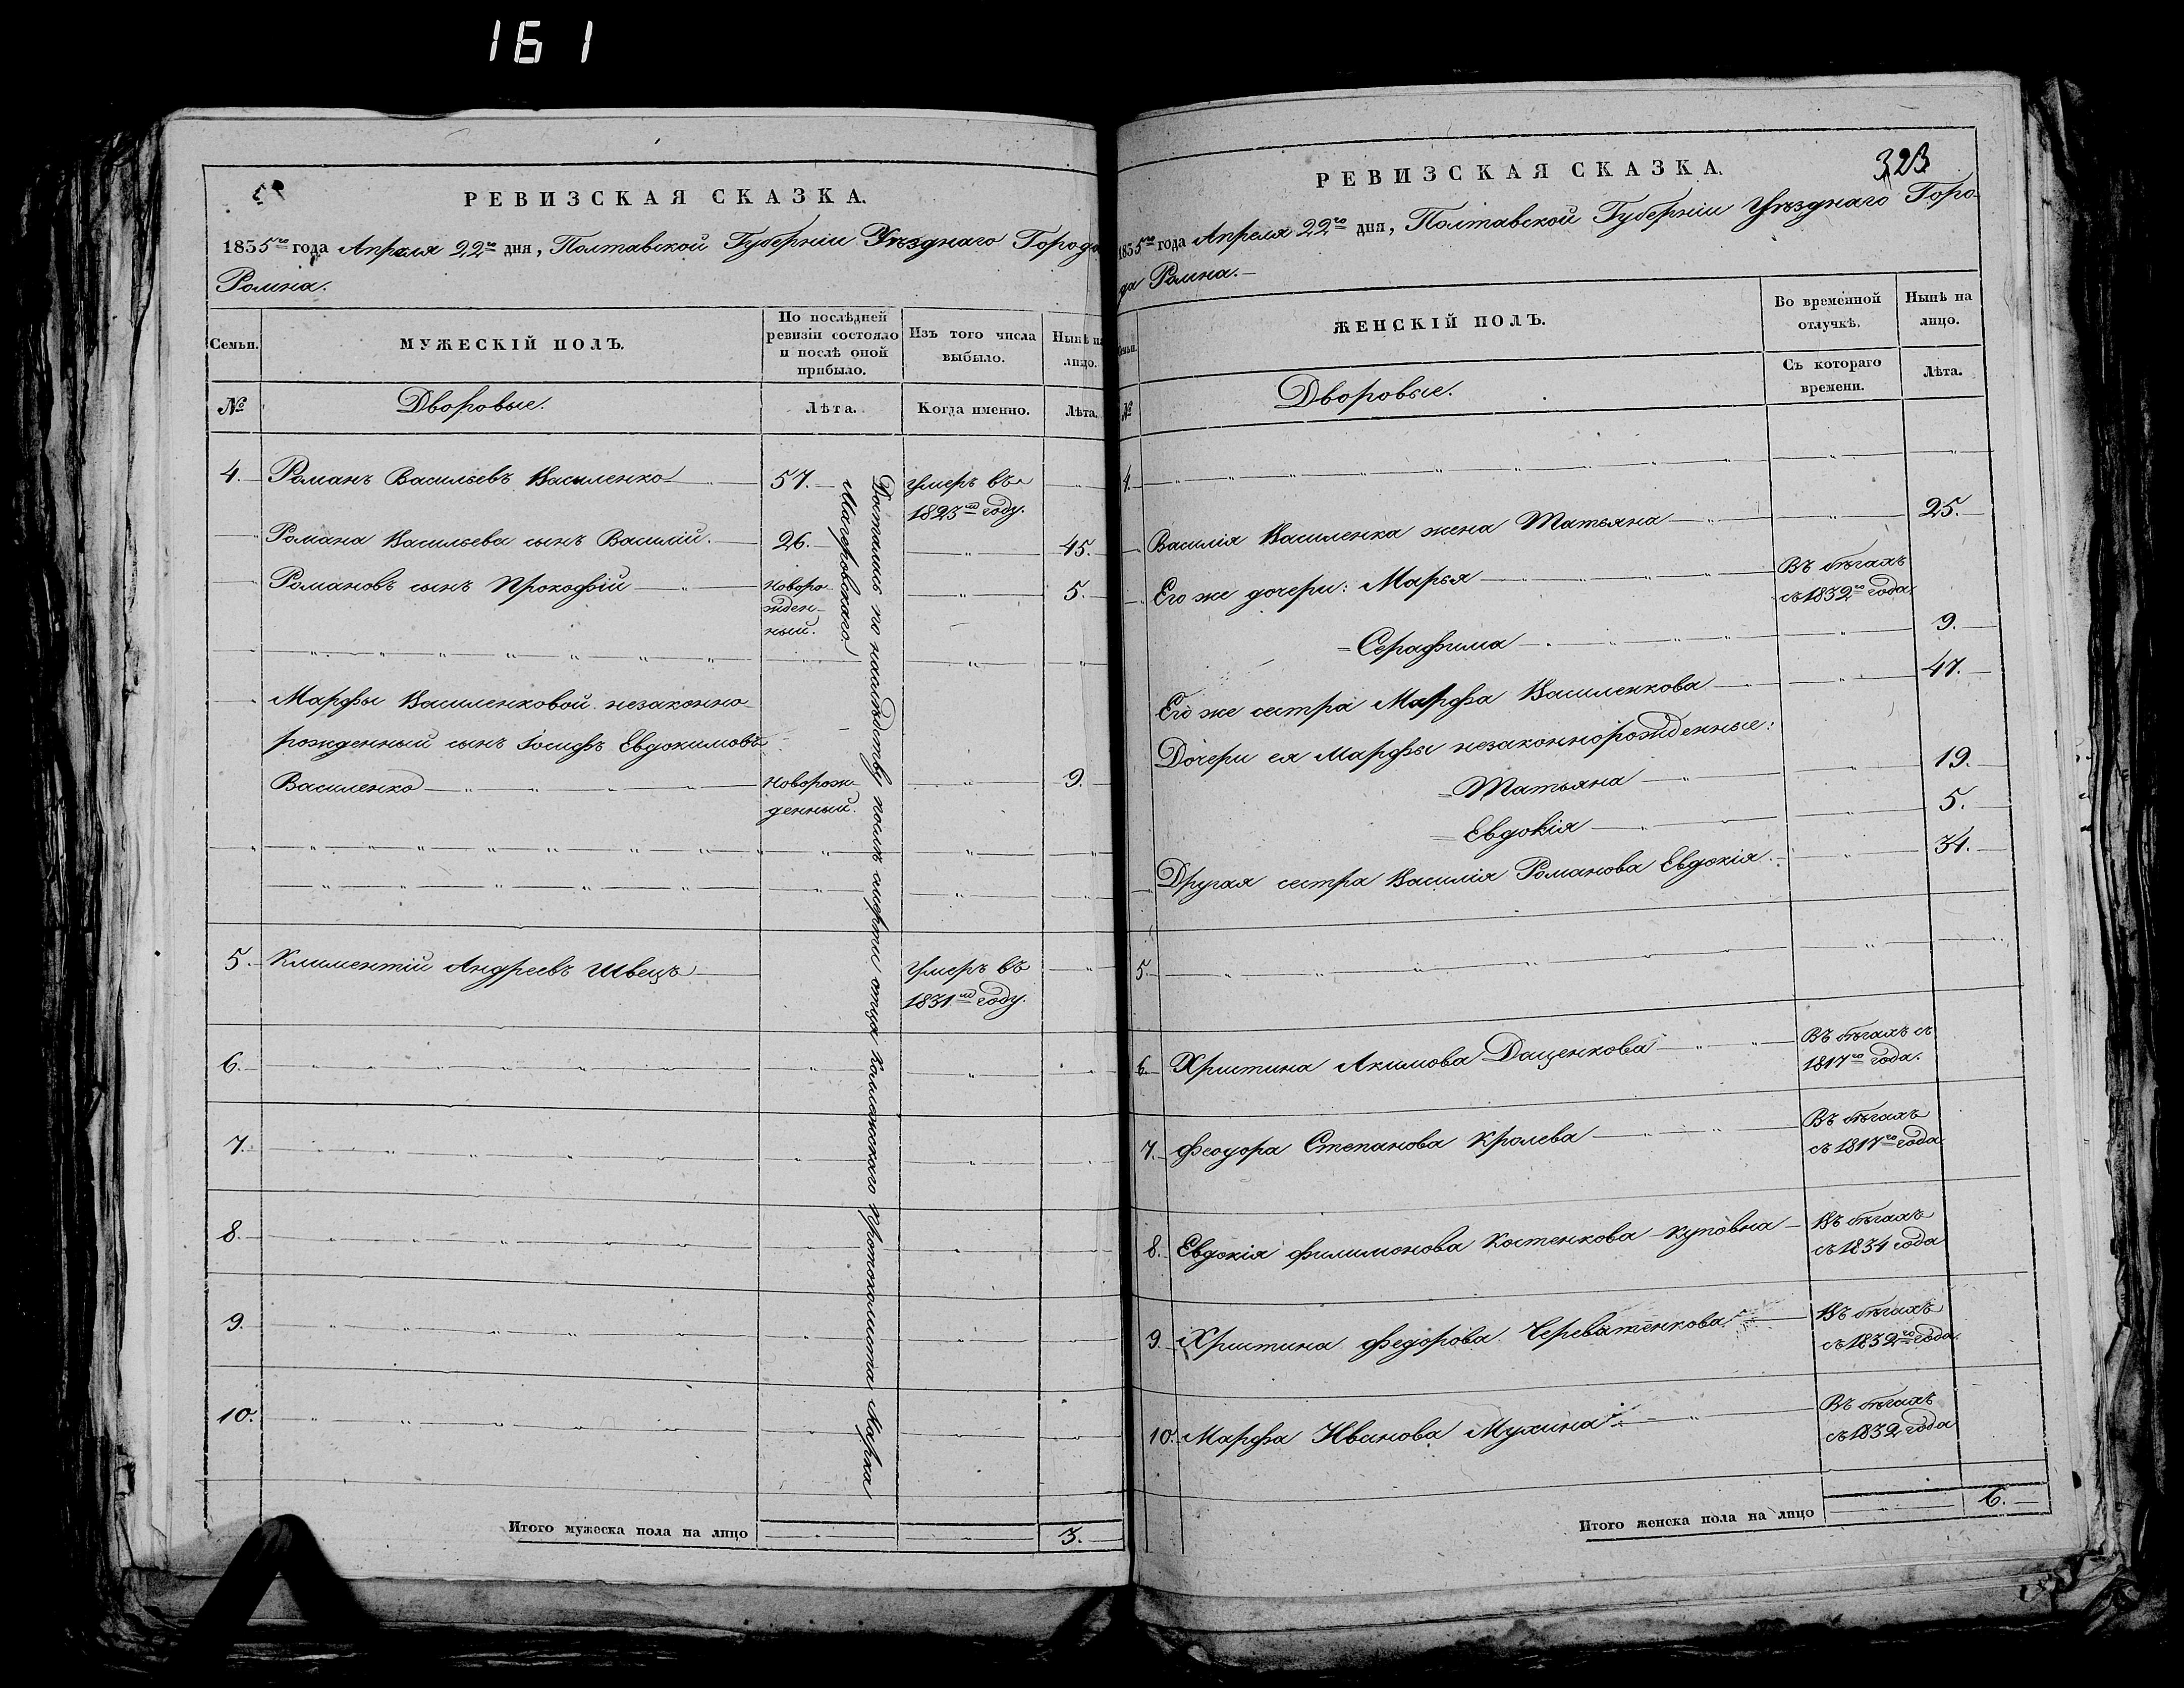 161
РЕВИЗСКАЯ СКАЗКА.
1835го года Апреля 22го дня, Полтавской Губерніи Уѣзднаго Города
Ромна.
Семьи.
МУЖЕСКІЙ ПОЛЪ.
По послѣдней
ревизіи состояло
и послѣ оной
прибыло.
Изъ того числа
выбыло.
Нынѣ на
лицо.
№
Дворовые.
Лѣта.
Когда именно.
Лѣта.
4. Романъ Васильевъ Василенко 57. умеръ въ
1823мъ году.
Романа Васильева сынъ Василій. 26. 45.
Романовъ сынъ Прокофій Новоро- 5.
жден-
ный.
Марфы Василенковой незаконно
рожденный сынъ Іосифъ Евдокимовъ
Василенко Новорож- 9.
денный.
5. Климентій Андреевъ Швецъ умеръ въ
1831мъ году.
6.
7.
8.
9.
10.
Достались по наслѣдству послѣ смерти отца Коллежскаго Протоколиста Марка
Магеровскаго
Итого мужеска пола на лицо 3.
323
РЕВИЗСКАЯ СКАЗКА.
1835го года Апреля 22го дня, Полтавской Губерніи Уѣзднаго Горо-
да Ромна.
Семьи.
ЖЕНСКІЙ ПОЛЪ.
Во временной
отлучкѣ.
Нынѣ на
лицо.
№
Дворовые.
Съ котораго
времени.
Лѣта.
4.
Василія Василенка жена Татьяна 25.
Его же дочери: Марья Въ бѣгахъ
съ 1832го года.
Серафима 9.
Его же сестра Марфа Василенкова 47.
Дочери ея Марфы незаконнорожденные:
Татьяна 19.
Евдокія 5.
Другая сестра Василія Романова Евдокія. 34.
5.
6. Христина Акимова Даценкова Въ бѣгахъ съ
1817го года.
7. Феодора Степанова Кролева Въ бѣгахъ
съ 1817го года.
8. Евдокія Филимонова Костенкова куповна Въ бѣгахъ
съ 1834 года
9. Христина Федорова Череватенкова Въ бѣгахъ
съ 1832го года.
10. Марфа Иванова Мухина Въ бѣгахъ
съ 1832 года
Итого женска пола на лицо 6.